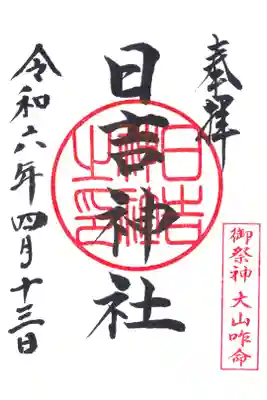 奉拝
日吉神社
日吉神社之印
令和六年四月十三日
御祭神 大山咋命